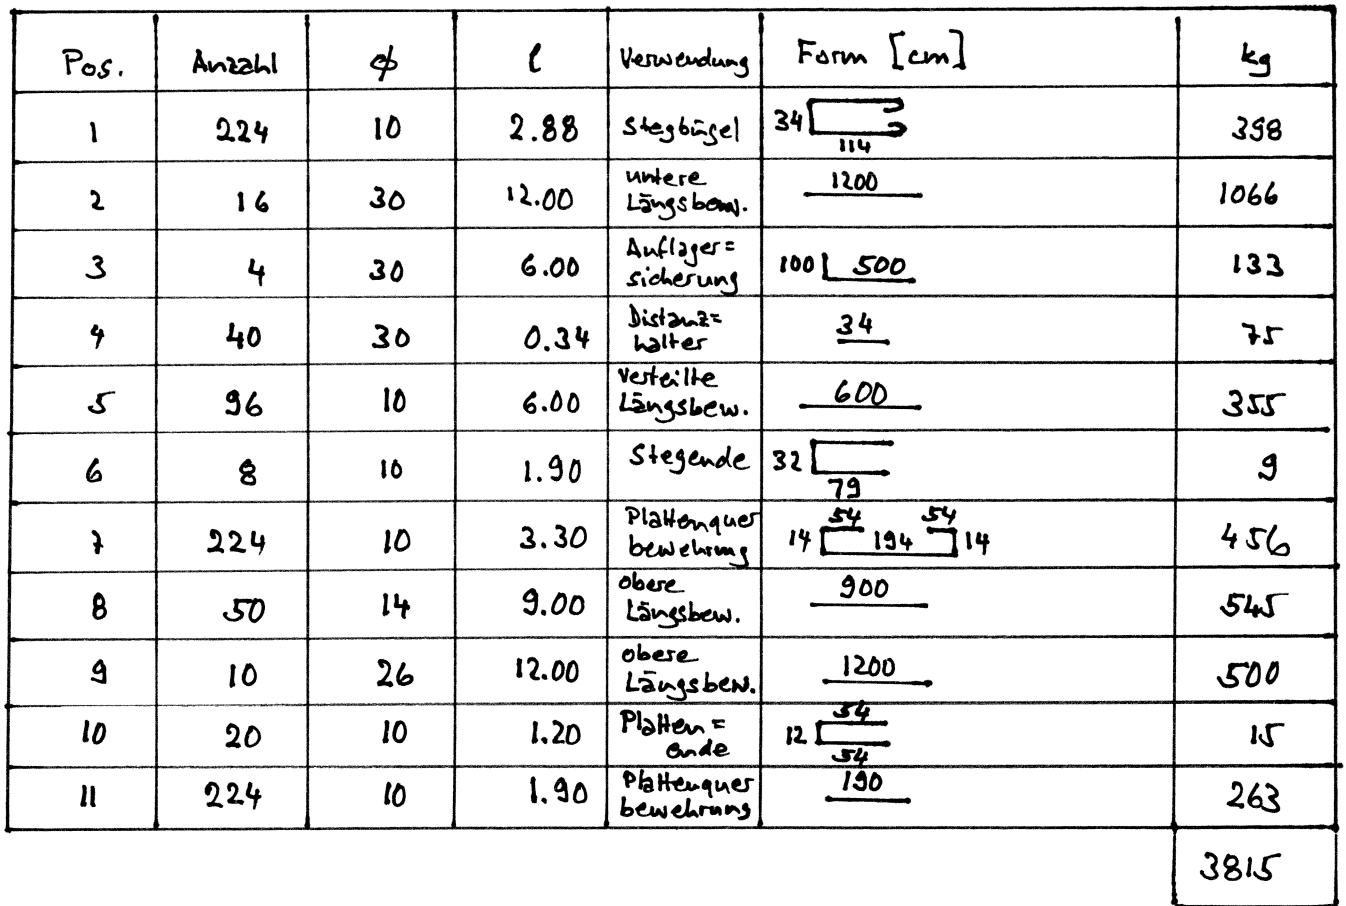 Pos. Anzahl ϕ l Verwendung Form [cm] kg
1 224 10 2.88 Stegbügel 34 114 398
2 16 30 12.00 untere Längsbew. 1200 1066
3 4 30 6.00 Auflager= sicherung 100 500 133
4 40 30 0.34 Distanz= halter 34 75
5 96 10 6.00 Verteilte Längsbew. 600 355
6 8 10 1.90 Stegende 32 79 9
7 224 10 3.30 Plattenquer bewehrung 14 54 194 54 14 456
8 50 14 9.00 obere Längsbew. 900 545
9 10 26 12.00 obere Längsbew. 1200 500
10 20 10 1.20 Platten= ende 12 54 54 15
11 224 10 1.90 Plattenquer bewehrung 190 263
3815